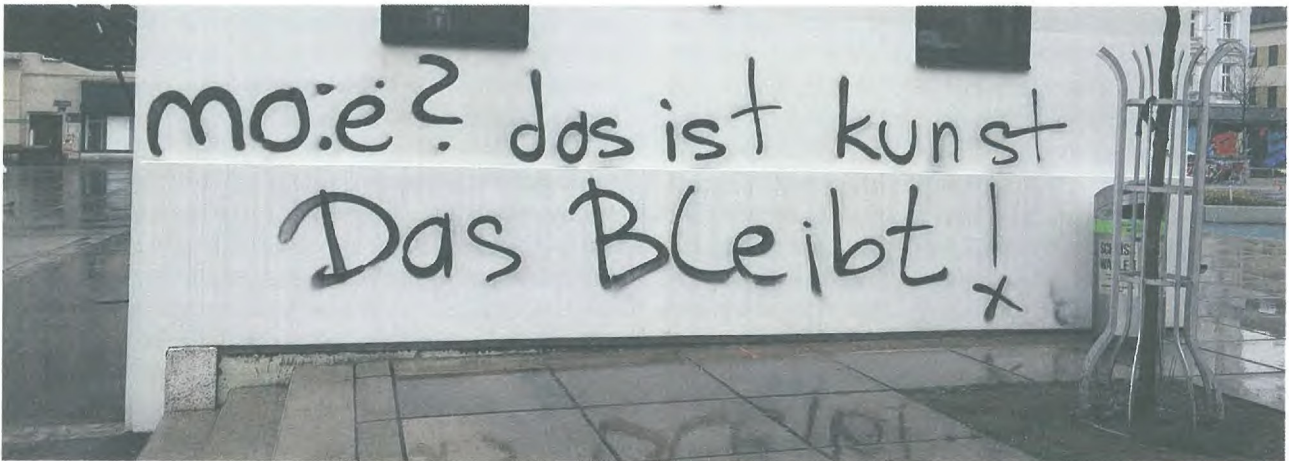 mo:ë? das ist kunst
Das Bleibt!